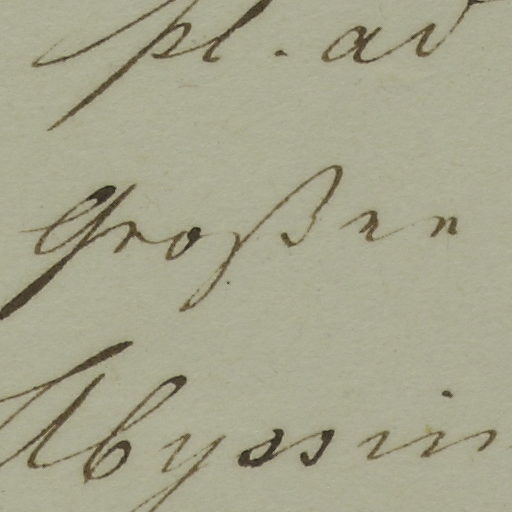 pl. ad
Großen
Abyssin